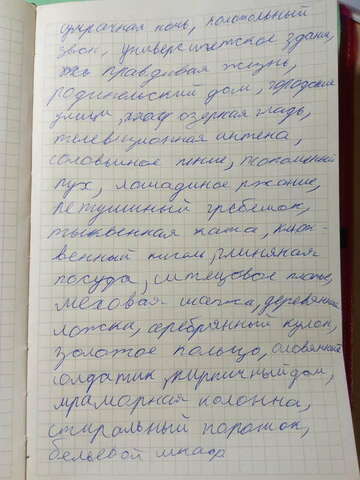 мрачная ночь, колокольный
звон, университетское здание,
правдивая жизнь,
родительский дом, городские
улицы, озерная гладь,
телевизионная антена,
соловьиное пение, тополиный
пух, лошадиное ржание,
петушиный гребешок,
тыквенная каша, клюк-
венный кисель, глиняная
посуда, ситцевое платье,
меховая шапка, деревянная
ложка, серебрянный кулон,
золотое кольцо, оловянный
солдатик, кирпичный дом,
мраморная колонна,
стиральный порошок,
бельевой шкаф